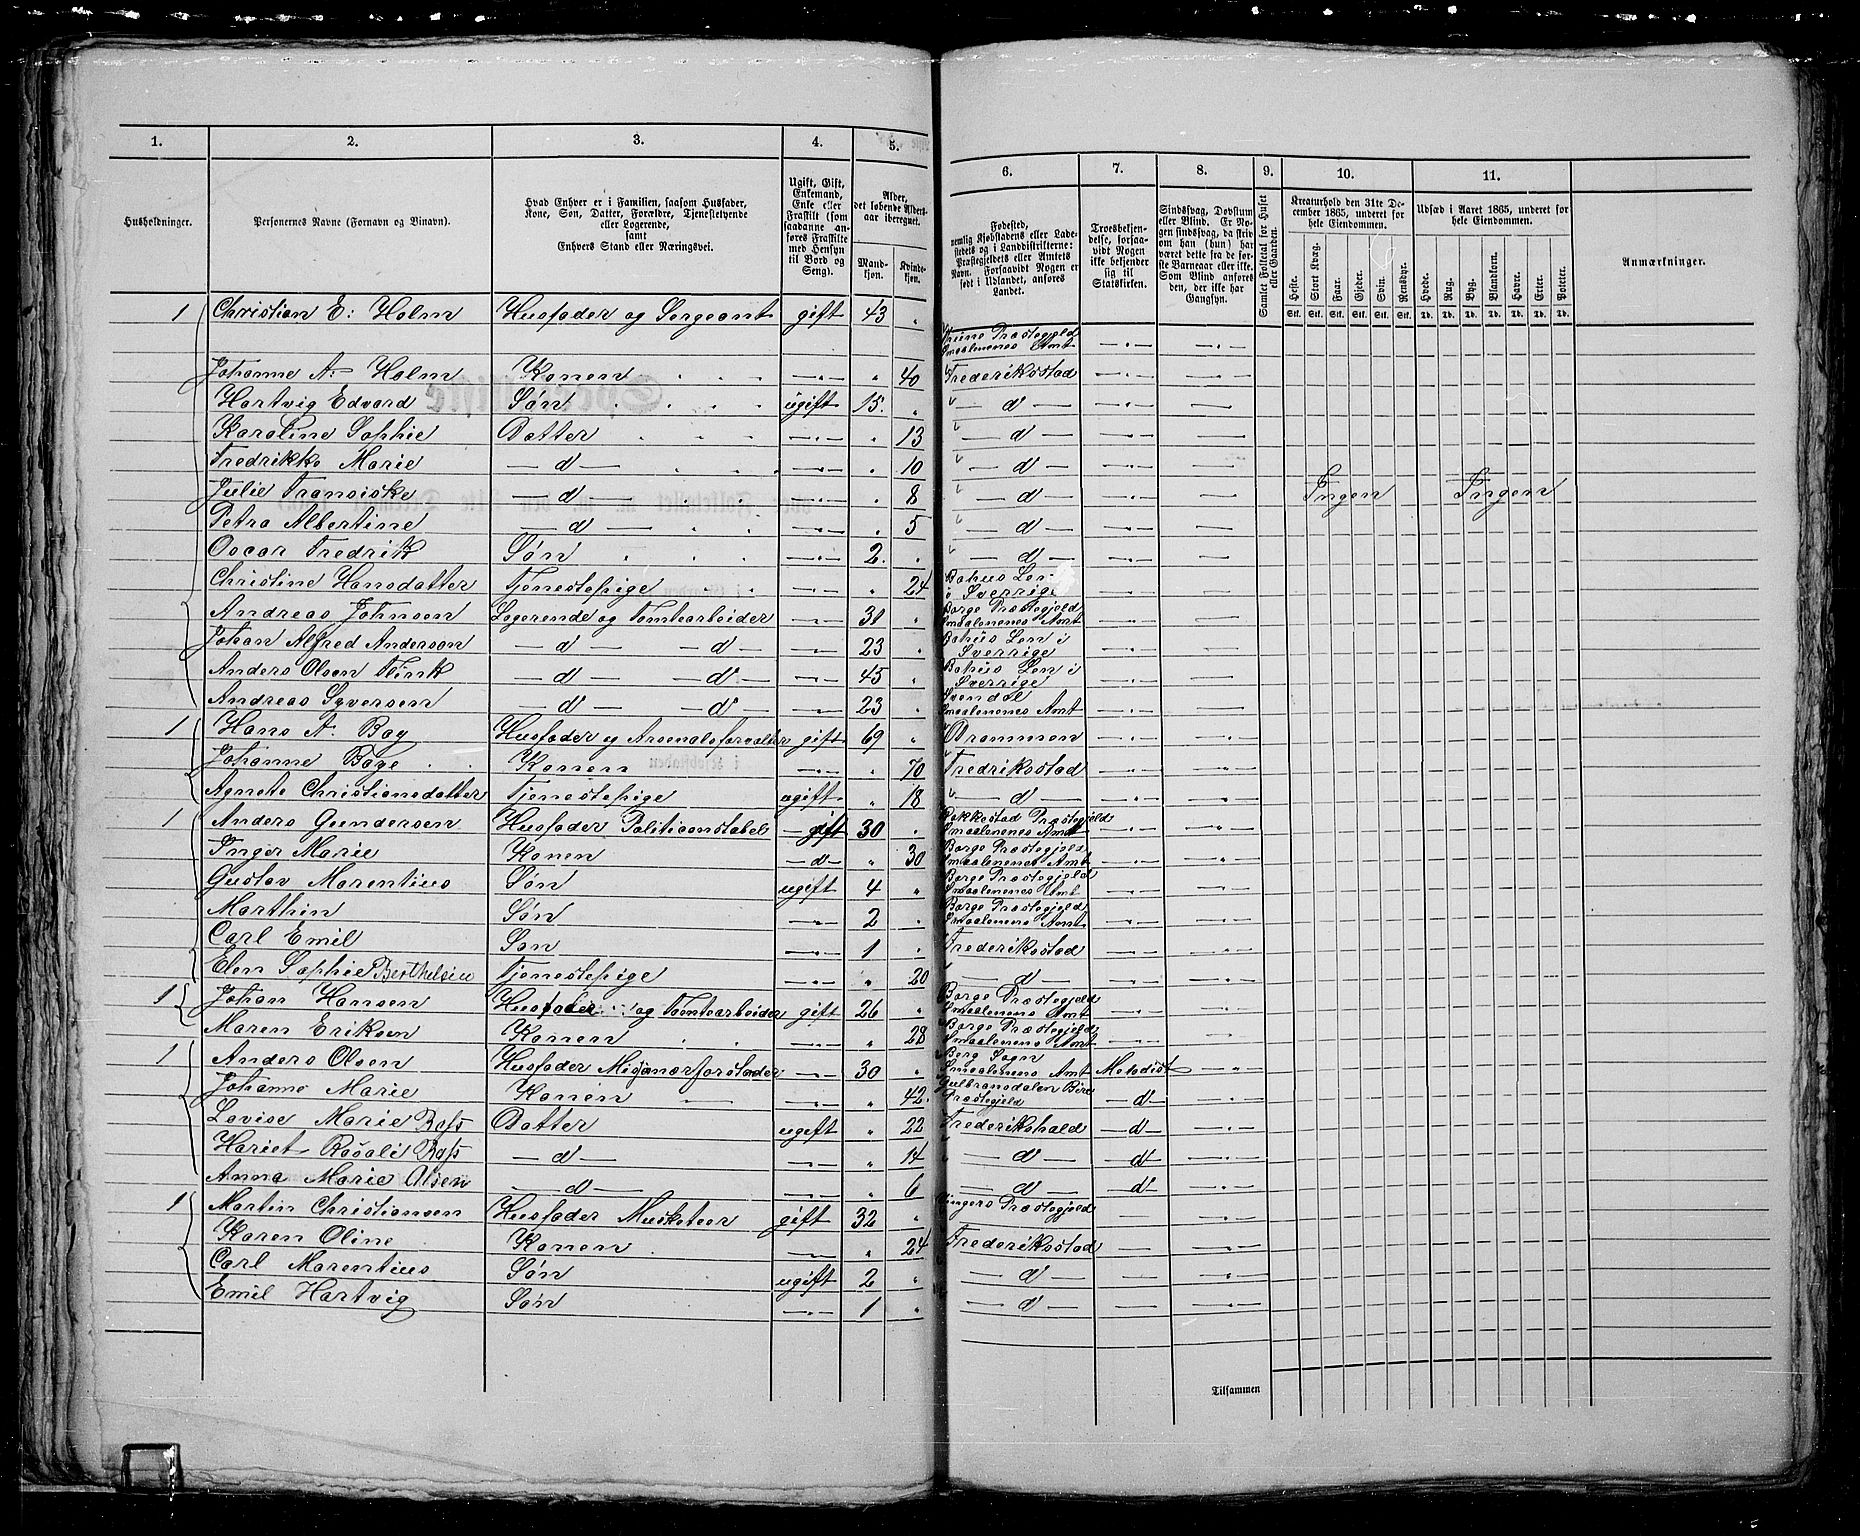 1. 2. 3. 4. 5. 6. 7. 8. 9. 10. 11.
Husholdninger.
Personernes Navne (Fornavn og Vinavn).
Hvad Enhver er i Familien, saasom Husfader,
Kone, Søn, Datter, Forældre, Tjenestetyende
eller Logerende,
samt
Enhvers Stand eller Næringsvei.
Ugift, Gift,
Enkemand,
Enke eller
Fraskilt (som
saadanne an-
føres Fraskilte
med Hensyn
til Bord og
Seng).
Alder,
det løbende Alders-
aar iberegnet.
Mand-
kjøn.
Kvinde-
kjøn.
Fødested,
nemlig Kjøbstadens eller Lade-
stedets og i Landdistrikterne:
Præstegjeldets eller Amtets
Navn. Forsaavidt Nogen er
født i Udlandet, anføres
Landet.
Troesbekjen-
delse, forsaa-
vidt Nogen
ikke bekjender
sig til
Statskirken.
Sindssvag, Døvstum
eller Blind. Er No-
gen sindssvag, da skrives
om han (hun) har
været dette fra de før-
ste Barneaar eller ikke.
Som Blind anføres
den, der ikke har
Gangsyn.
Samlet Folketal for Huset
eller Gaarden.
Kreaturhold den 31te De-
cember 1865, underet for
hele Eiendommen.
Heste. Stort Kvæg. Faar. Gjeder. Svin. Rensdyr.
Stk. Stk. Stk. Stk. Stk. Stk.
Udsæd i Aaret 1865, underet for
hele Eiendommen.
Hvede. Rug. Byg. Blandkorn. Havre. Erter. Poteter.
Td. Td. Td. Td. Td. Td. Td.
Anmærkninger.
1 Christian E: Holm Husfader og Sergeant gift 43 " Thune Præstegjeld Smaalenenes Amt
Johanne A: Holm Konen " 40 Frederikstad
Hartvig Edvard Søn ugift 15. " — d —
Karoline Sophie Datter " 13 — d —
Fredrikke Marie — d — " 10 — d —
Julie Fransiske — d — " 8 — d — Ingen Ingen
Petra Albertine — d — " 5 — d —
Oscar Fredrik Søn 2. " — d —
Christine Hansdatter Tjenestepige " 24 Bahus Len i Sverrige
Andreas Johnsen Logerende og Tomtearbeider 30 " Borge Præstegjeld Smaalenenes Amt
Johan Alfred Anderson — d — — d — 23 " Bahus Len i Sverrige
Anders Olsen Flink — d — — d — 45 " Bahus Len i Sverrige
Andreas Syversen — d — — d — 23 " Svendal Smaalenenes Amt
1 Hans A. Bay Husfader og Arsenalsforvalter gift 69 " Drammen
Johanne Baye Konen " 70 Fredrikstad
Agnete Christiansdatter Tjenestepige ugift " 18 — d —
1 Anders Gundersen Husfader Politiconstabel gift 30 " Rakkestad Præstegjeld Smaalenenes Amt
Inger Marie Konen — d — " 30 Borge Præstegjeld Smaalenenes Amt
Gustav Marentius Søn ugift 4 " Borge Præstegjeld Smaalenenes Amt
Marthin Søn 2 " Borge Præstegjeld Smaalenens Amt
Carl Emil Søn 1 " Frederikstad
Elen Sophie Berthelsen Tjenestepige " 20 — d —
1 Johan Hansen Husfader og Tomtearbeider gift 26 " Borge Præstegjeld Smaalenens Amt
Maren Eriksen Konen " 28 Borge Præstegjeld Smaalenens Amt
1 Anders Olsen Husfader Misjonærforstader 30 " Berg Sogn Smaalenens Amt Metodist
Johanne Marie Konen " 42. Gulbransdalen Præstegjeld — d —
Lovise Marie Bass Datter ugift " 22 Frederikshald — d —
Hariet Rosali Bass — d — " 14 — d — — d —
Anna Marie Olsen — d — " 6 — d — — d —
1 Martin Christiansen Husfader Musketeer gift 32 " Vingers Præstegjeld
Karen Oline Konen " 24 Frederikstad
Carl Marentius Søn ugift 2 " — d —
Emil Hartvig Søn 1 " — d —
Tilsammen